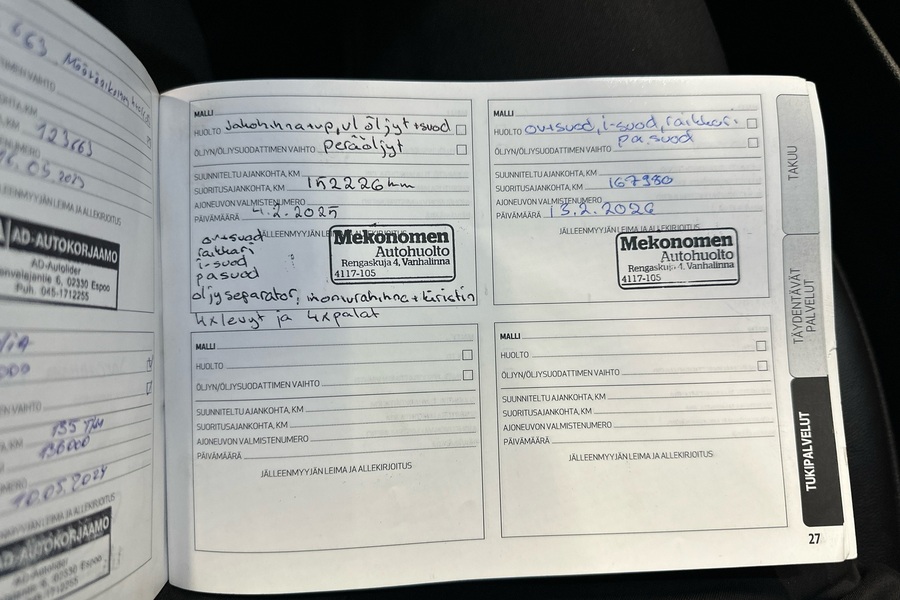 663 Määräaikaishuolto
123663
16.05.2023
JÄLLEENMYYJÄN LEIMA JA ALLEKIRJOITUS
AD-AUTOKORJAAMO
AD-Autolider
6, 02330 Espoo
Puh. 045-1712255
135 T/M
136000
10.05.2024
AD-AUTOKORJAAMO
AD-Autolider
6, 02330 Espoo
045-1712255
MALLI
HUOLTO Jakohihna+vp, vl öljyt+suod
ÖLJYN/ÖLJYSUODATTIMEN VAIHTO peräöljyt
SUUNNITELTU AJANKOHTA, KM
SUORITUSAJANKOHTA, KM 152226 km
AJONEUVON VALMISTENUMERO
PÄIVÄMÄÄRÄ 4.2.2025
JÄLLEENMYYJÄN LEIMA JA ALLEKIRJOITUS
öv+suod
raikkari
i-suod
pasuod
Mekonomen
Autohuolto
Rengaskuja 4, Vanhalinna
4117-105
öljyseparator, moniurahihna+kiristin
4xlevyt ja 4xpalat
MALLI
HUOLTO öv+suod, i-suod, raikkari
ÖLJYN/ÖLJYSUODATTIMEN VAIHTO pa.suod
SUUNNITELTU AJANKOHTA, KM
SUORITUSAJANKOHTA, KM 167980
AJONEUVON VALMISTENUMERO
PÄIVÄMÄÄRÄ 13.2.2026
JÄLLEENMYYJÄN LEIMA JA ALLEKIRJOITUS
Mekonomen
Autohuolto
Rengaskuja 4, Vanhalinna
4117-105
MALLI
HUOLTO
ÖLJYN/ÖLJYSUODATTIMEN VAIHTO
SUUNNITELTU AJANKOHTA, KM
SUORITUSAJANKOHTA, KM
AJONEUVON VALMISTENUMERO
PÄIVÄMÄÄRÄ
JÄLLEENMYYJÄN LEIMA JA ALLEKIRJOITUS
MALLI
HUOLTO
ÖLJYN/ÖLJYSUODATTIMEN VAIHTO
SUUNNITELTU AJANKOHTA, KM
SUORITUSAJANKOHTA, KM
AJONEUVON VALMISTENUMERO
PÄIVÄMÄÄRÄ
JÄLLEENMYYJÄN LEIMA JA ALLEKIRJOITUS
TAKUU
TÄYDENTÄVÄT
PALVELUT
TUKIPALVELUT
27